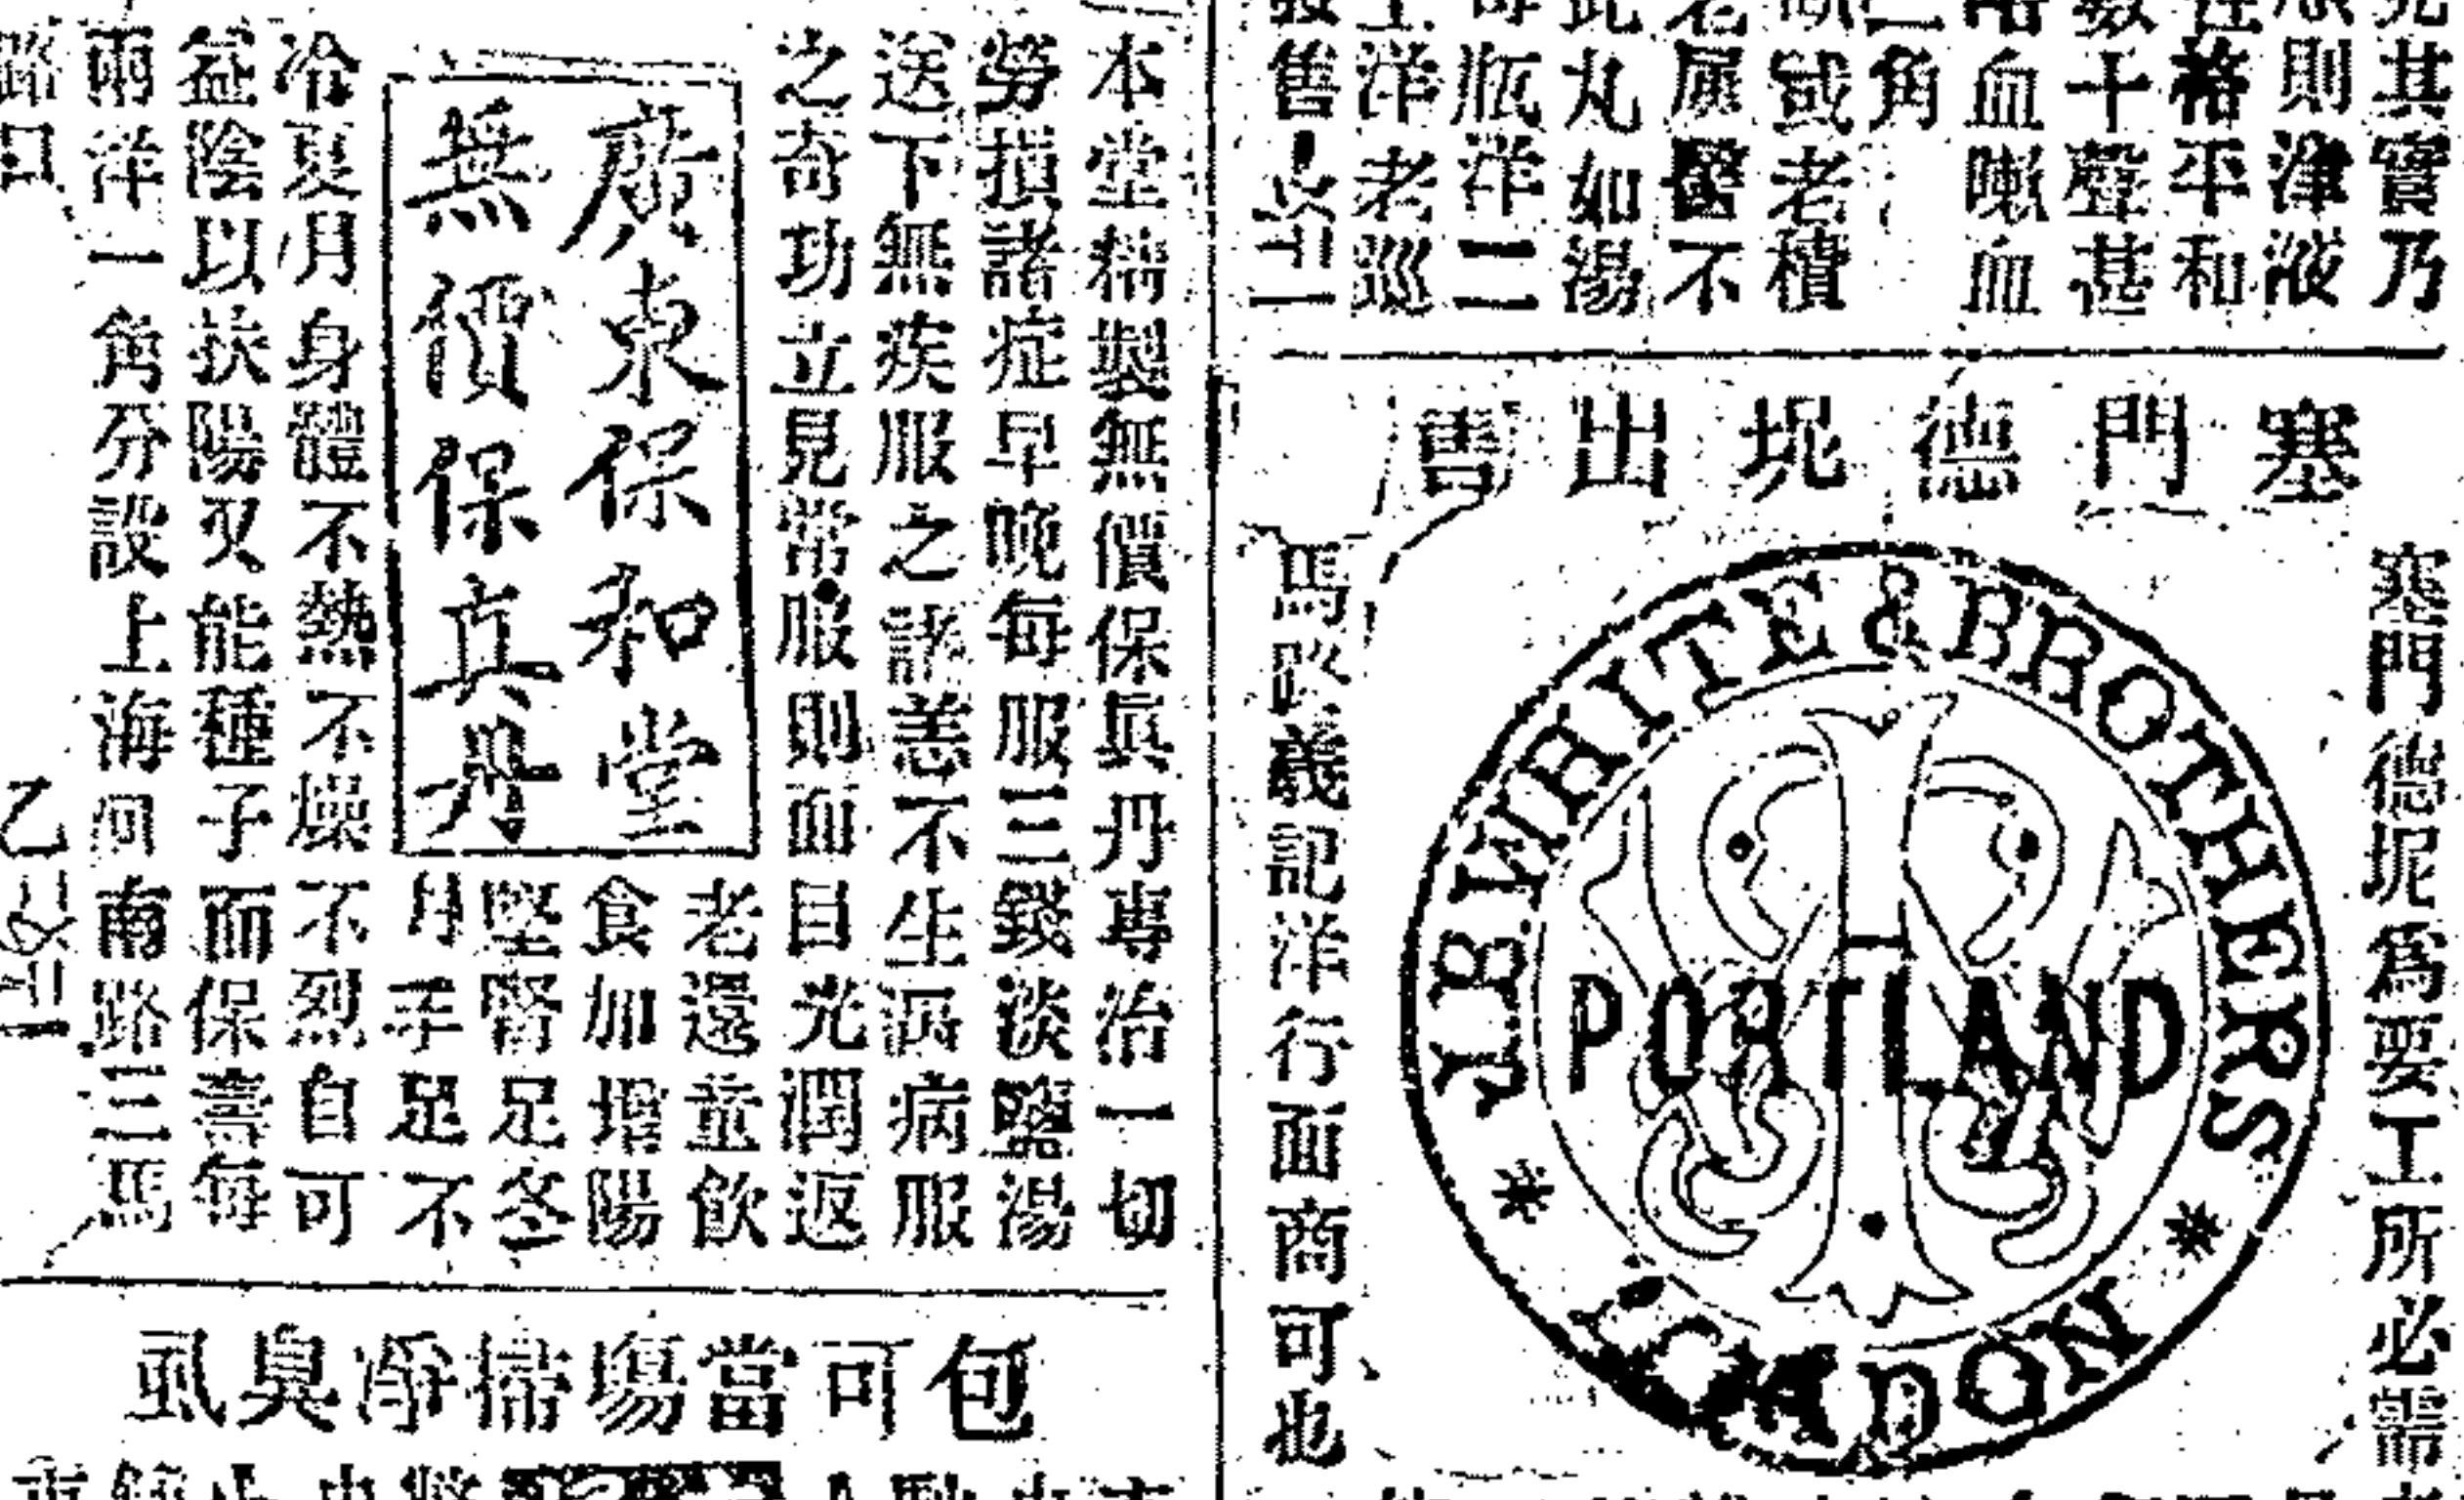 其實乃
則津液
格平和
數十聲甚
血嗽血
二角
或老積
屬醫不
此丸如湯
每瓶洋二
洋老巡
售
塞門德坭出售
塞門德坭爲要工所必需
J.B.WHITE & BROTHERS
PORTLAND
LONDON
馬路義記洋行面商可也
本堂精製無價保眞丹專治一切
勞損諸症早晚每服三錢淡鹽湯
送下無疾服之諸恙不生沉病服
之奇功立見常服則面目光潤返
老還童飲
食加增陽
堅腎足冬
月手足不
廣東保和堂
無價保真丹
冷夏月身體不熱不燥不烈自可
益陰以扶陽又能種子而保壽每
兩洋一角分設上海河南路三馬
路口
包可當塲掃淨臭虱